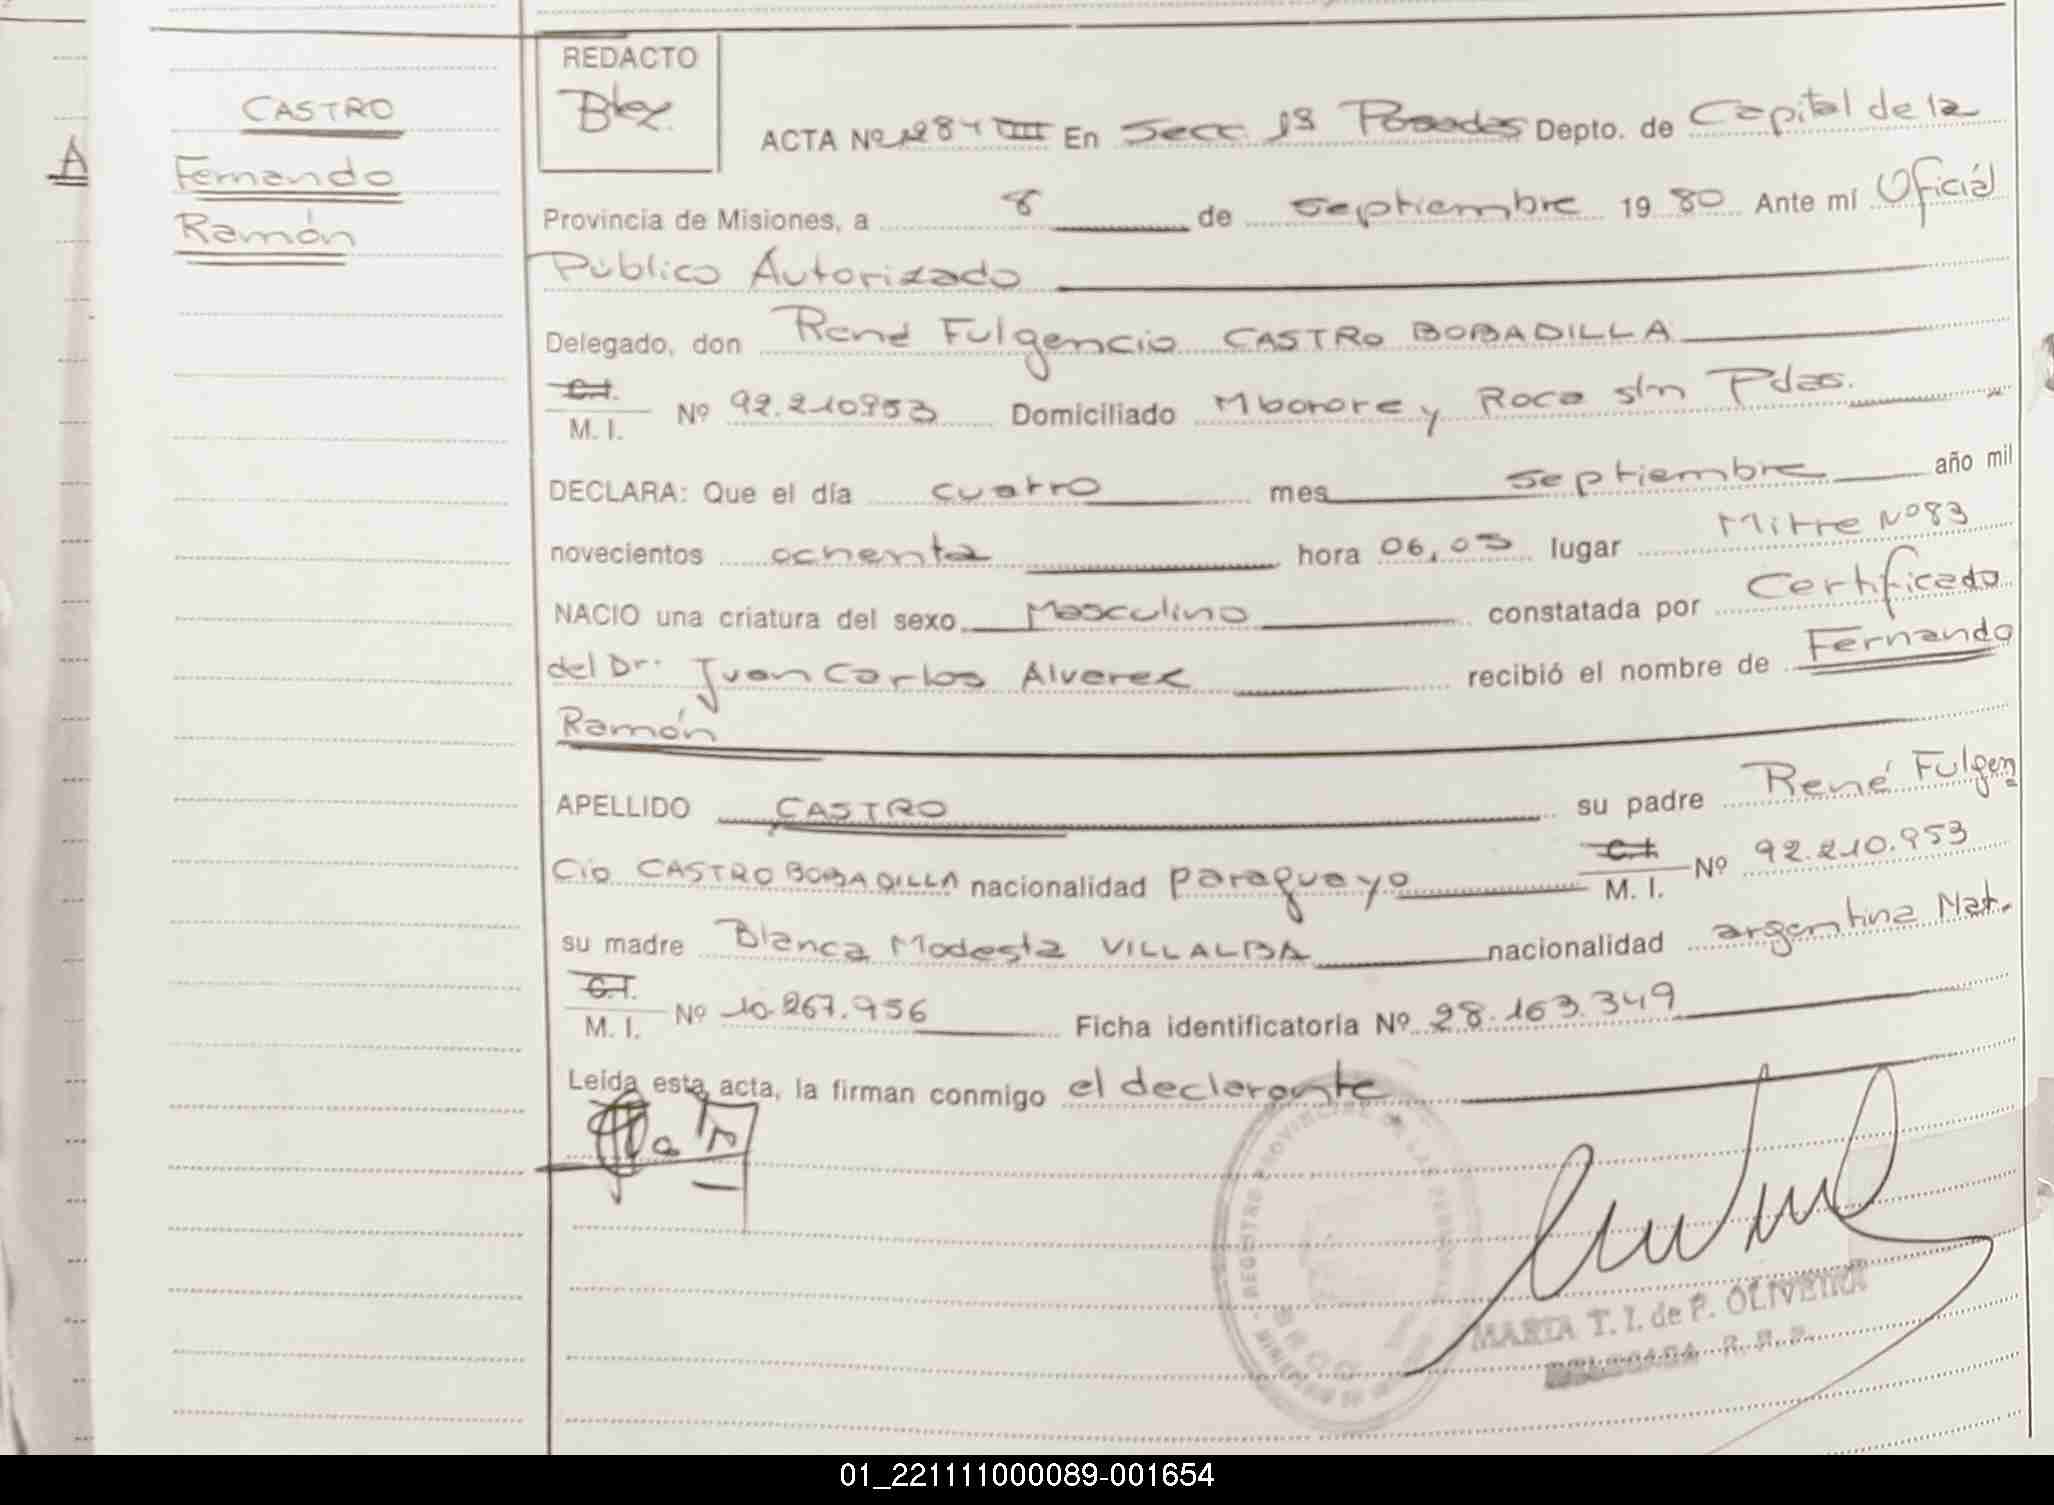 CASTRO
Fernando
Ramón
A
REDACTO
ACTA Nº 1284 III En Secc 1ª Posadas Depto. de Capital de la
Provincia de Misiones, a 8 de septiembre 19 80 Ante mí Oficial
Público Autorizado
Delegado, don René Fulgencio CASTRO BOBADILLA
C.I.
M. I. Nº 92.210953 Domiciliado Mborore y Roca s/n Pdas.
DECLARA: Que el día cuatro mes septiembre año mil
novecientos ochenta hora 06,05 lugar Mitre Nº 83
NACIO una criatura del sexo Masculino constatada por Certificado
del Dr. Juan Carlos Alverez recibió el nombre de Fernando
Ramón
APELLIDO CASTRO su padre René Fulgen
cio CASTRO BOBADILLA nacionalidad paraguayo C.I. M. I. Nº 92.210.953
su madre Blanca Modesta VILLALBA nacionalidad argentina Nat.
C.I.
M. I. Nº 10.267.956 Ficha identificatoria Nº 28.163.349
Leída esta acta, la firman conmigo el declarante
REGISTRO PROVINCIAL DE LAS PERSONAS
MARIA T. I. de P. OLIVEIRA
DELEGADA R. P. P.
01_221111000089-001654